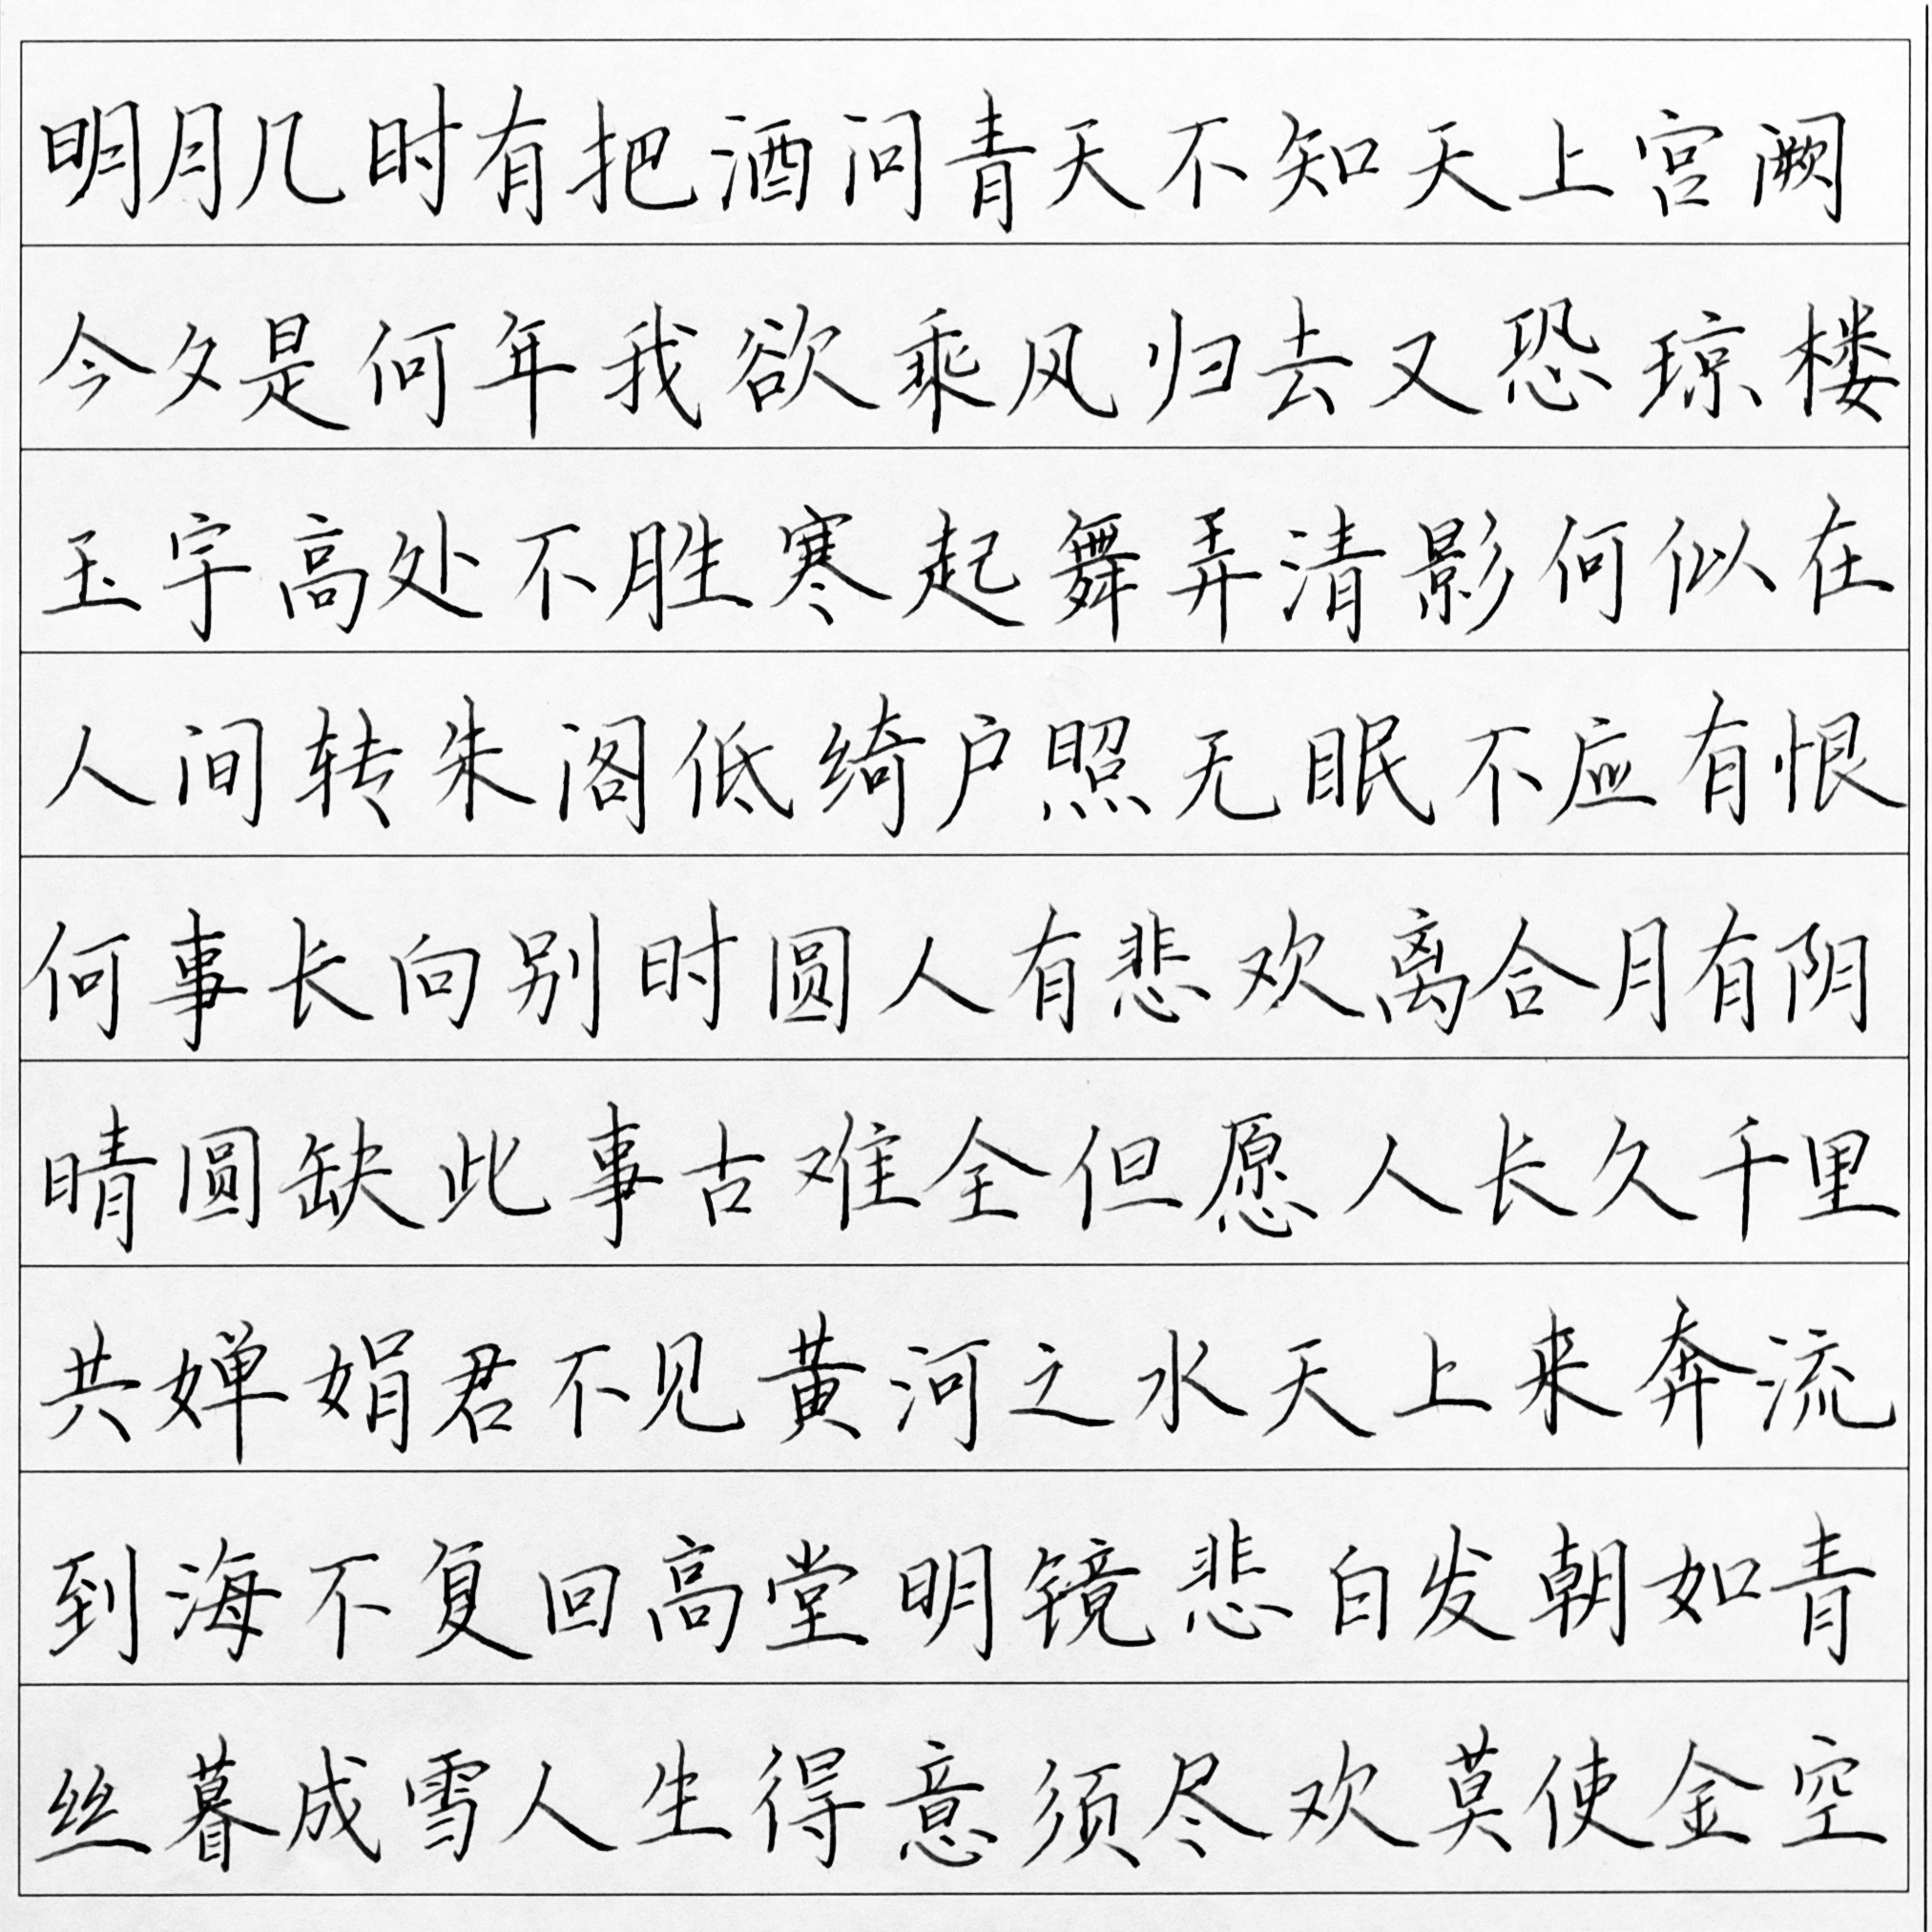 明月几时有把酒问青天不知天上宫阙
今夕是何年我欲乘风归去又恐琼楼
玉宇高处不胜寒起舞弄清影何似在
人间转朱阁低绮户照无眠不应有恨
何事长向别时圆人有悲欢离合月有阴
晴圆缺此事古难全但愿人长久千里
共婵娟君不见黄河之水天上来奔流
到海不复回高堂明镜悲白发朝如青
丝暮成雪人生得意须尽欢莫使金空